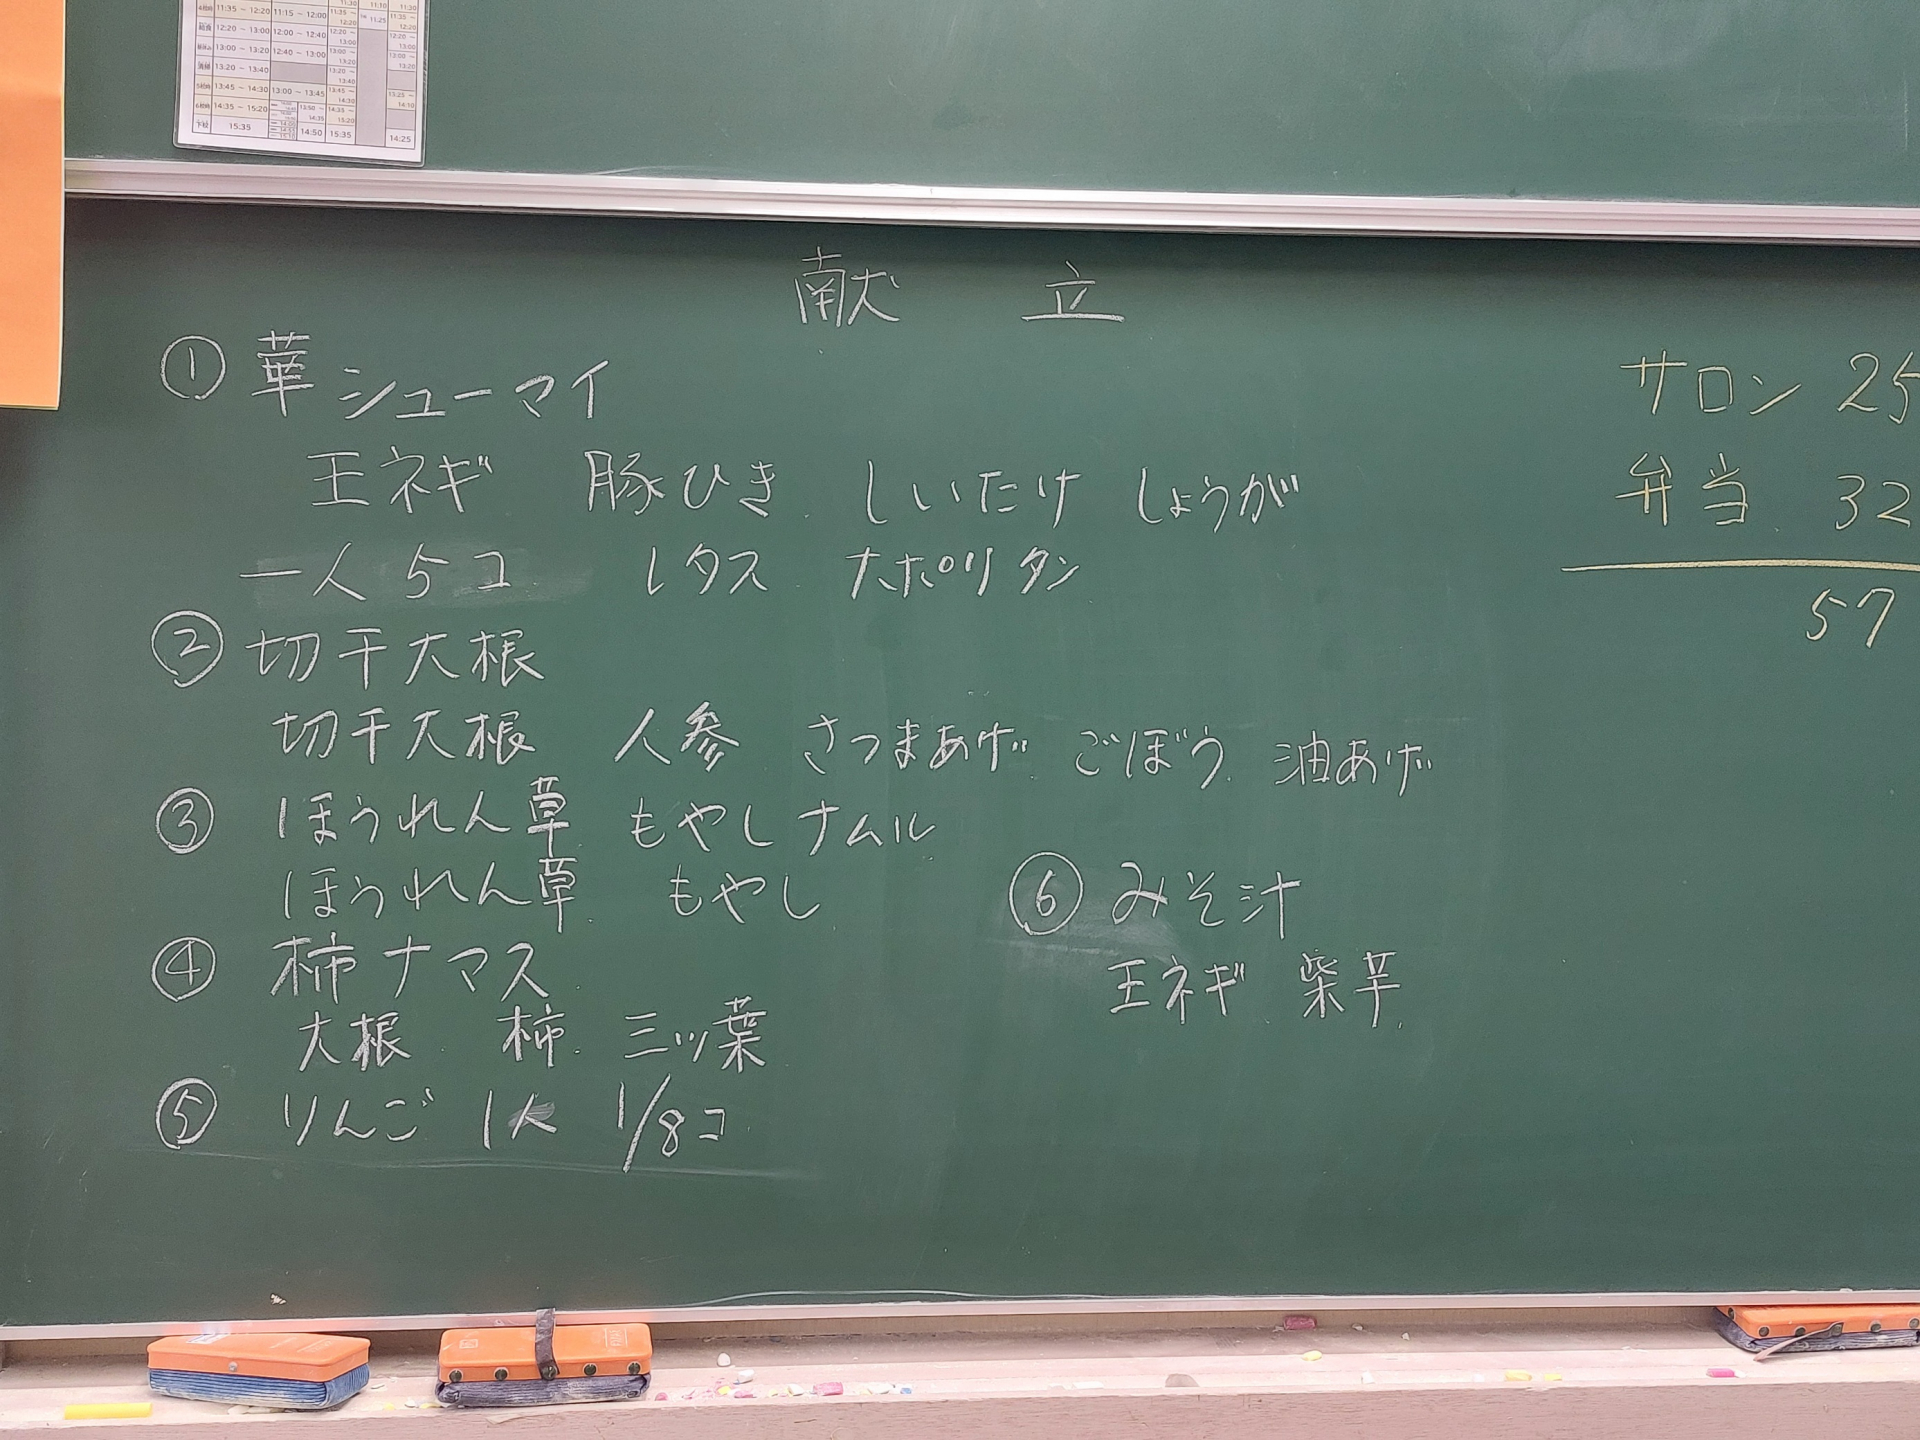 4校時 11:35 ~ 12:20 11:15 ~ 12:00 11:35 ~ 12:20 11:25 11:35 ~ 12:20
給食 12:20 ~ 13:00 12:00 ~ 12:40 12:20 ~ 13:00 12:20 ~ 13:00
昼休み 13:00 ~ 13:20 12:40 ~ 13:00 13:00 ~ 13:20 13:00 ~ 13:20
清掃 13:20 ~ 13:40 13:20 ~ 13:40
5校時 13:45 ~ 14:30 13:00 ~ 13:45 13:45 ~ 14:30 13:25 ~ 14:10
6校時 14:35 ~ 15:20 13:50 ~ 14:35 14:35 ~ 15:20
下校 15:35 14:50 15:35 14:25
献 立
① 華シューマイ
王ネギ 豚ひき しいたけ しょうが
一人 5コ レタス ナポリタン
② 切干大根
切干大根 人参 さつまあげ ごぼう 油あげ
③ ほうれん草 もやしナムル
ほうれん草 もやし
④ 柿ナマス
大根 柿 三ッ葉
⑤ りんご 1人 1/8コ
⑥ みそ汁
王ネギ 柴芋
サロン 25
弁当 32
57